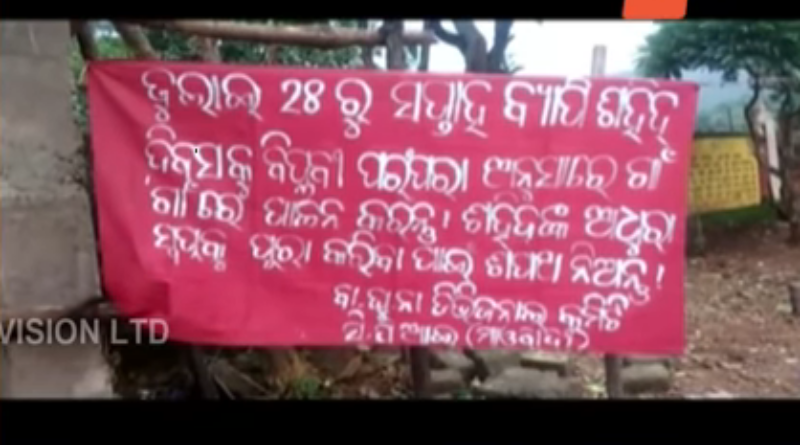 ଜୁଲାଇ 28 ରୁ ସପ୍ତାହ ବ୍ୟାପି ଶହିଦ୍
ଦିବସକୁ ବିପ୍ଳବୀ ପରଂପରା ଅନୁସାରେ ଗାଁ
ଗାଁ ରେ ପାଳନ କରନ୍ତୁ! ଶହିଦଙ୍କ ଅଧୁରା
ସ୍ୱପ୍ନକୁ ପୁରା କରିବା ପାଇଁ ଶପଥ ନିଅନ୍ତୁ!
ବା.ଘୁ.ନା ଡିଭିଜନାଲ କମିଟି
ସି.ପି ଆଇ (ମାଓବାଦୀ)
VISION LTD